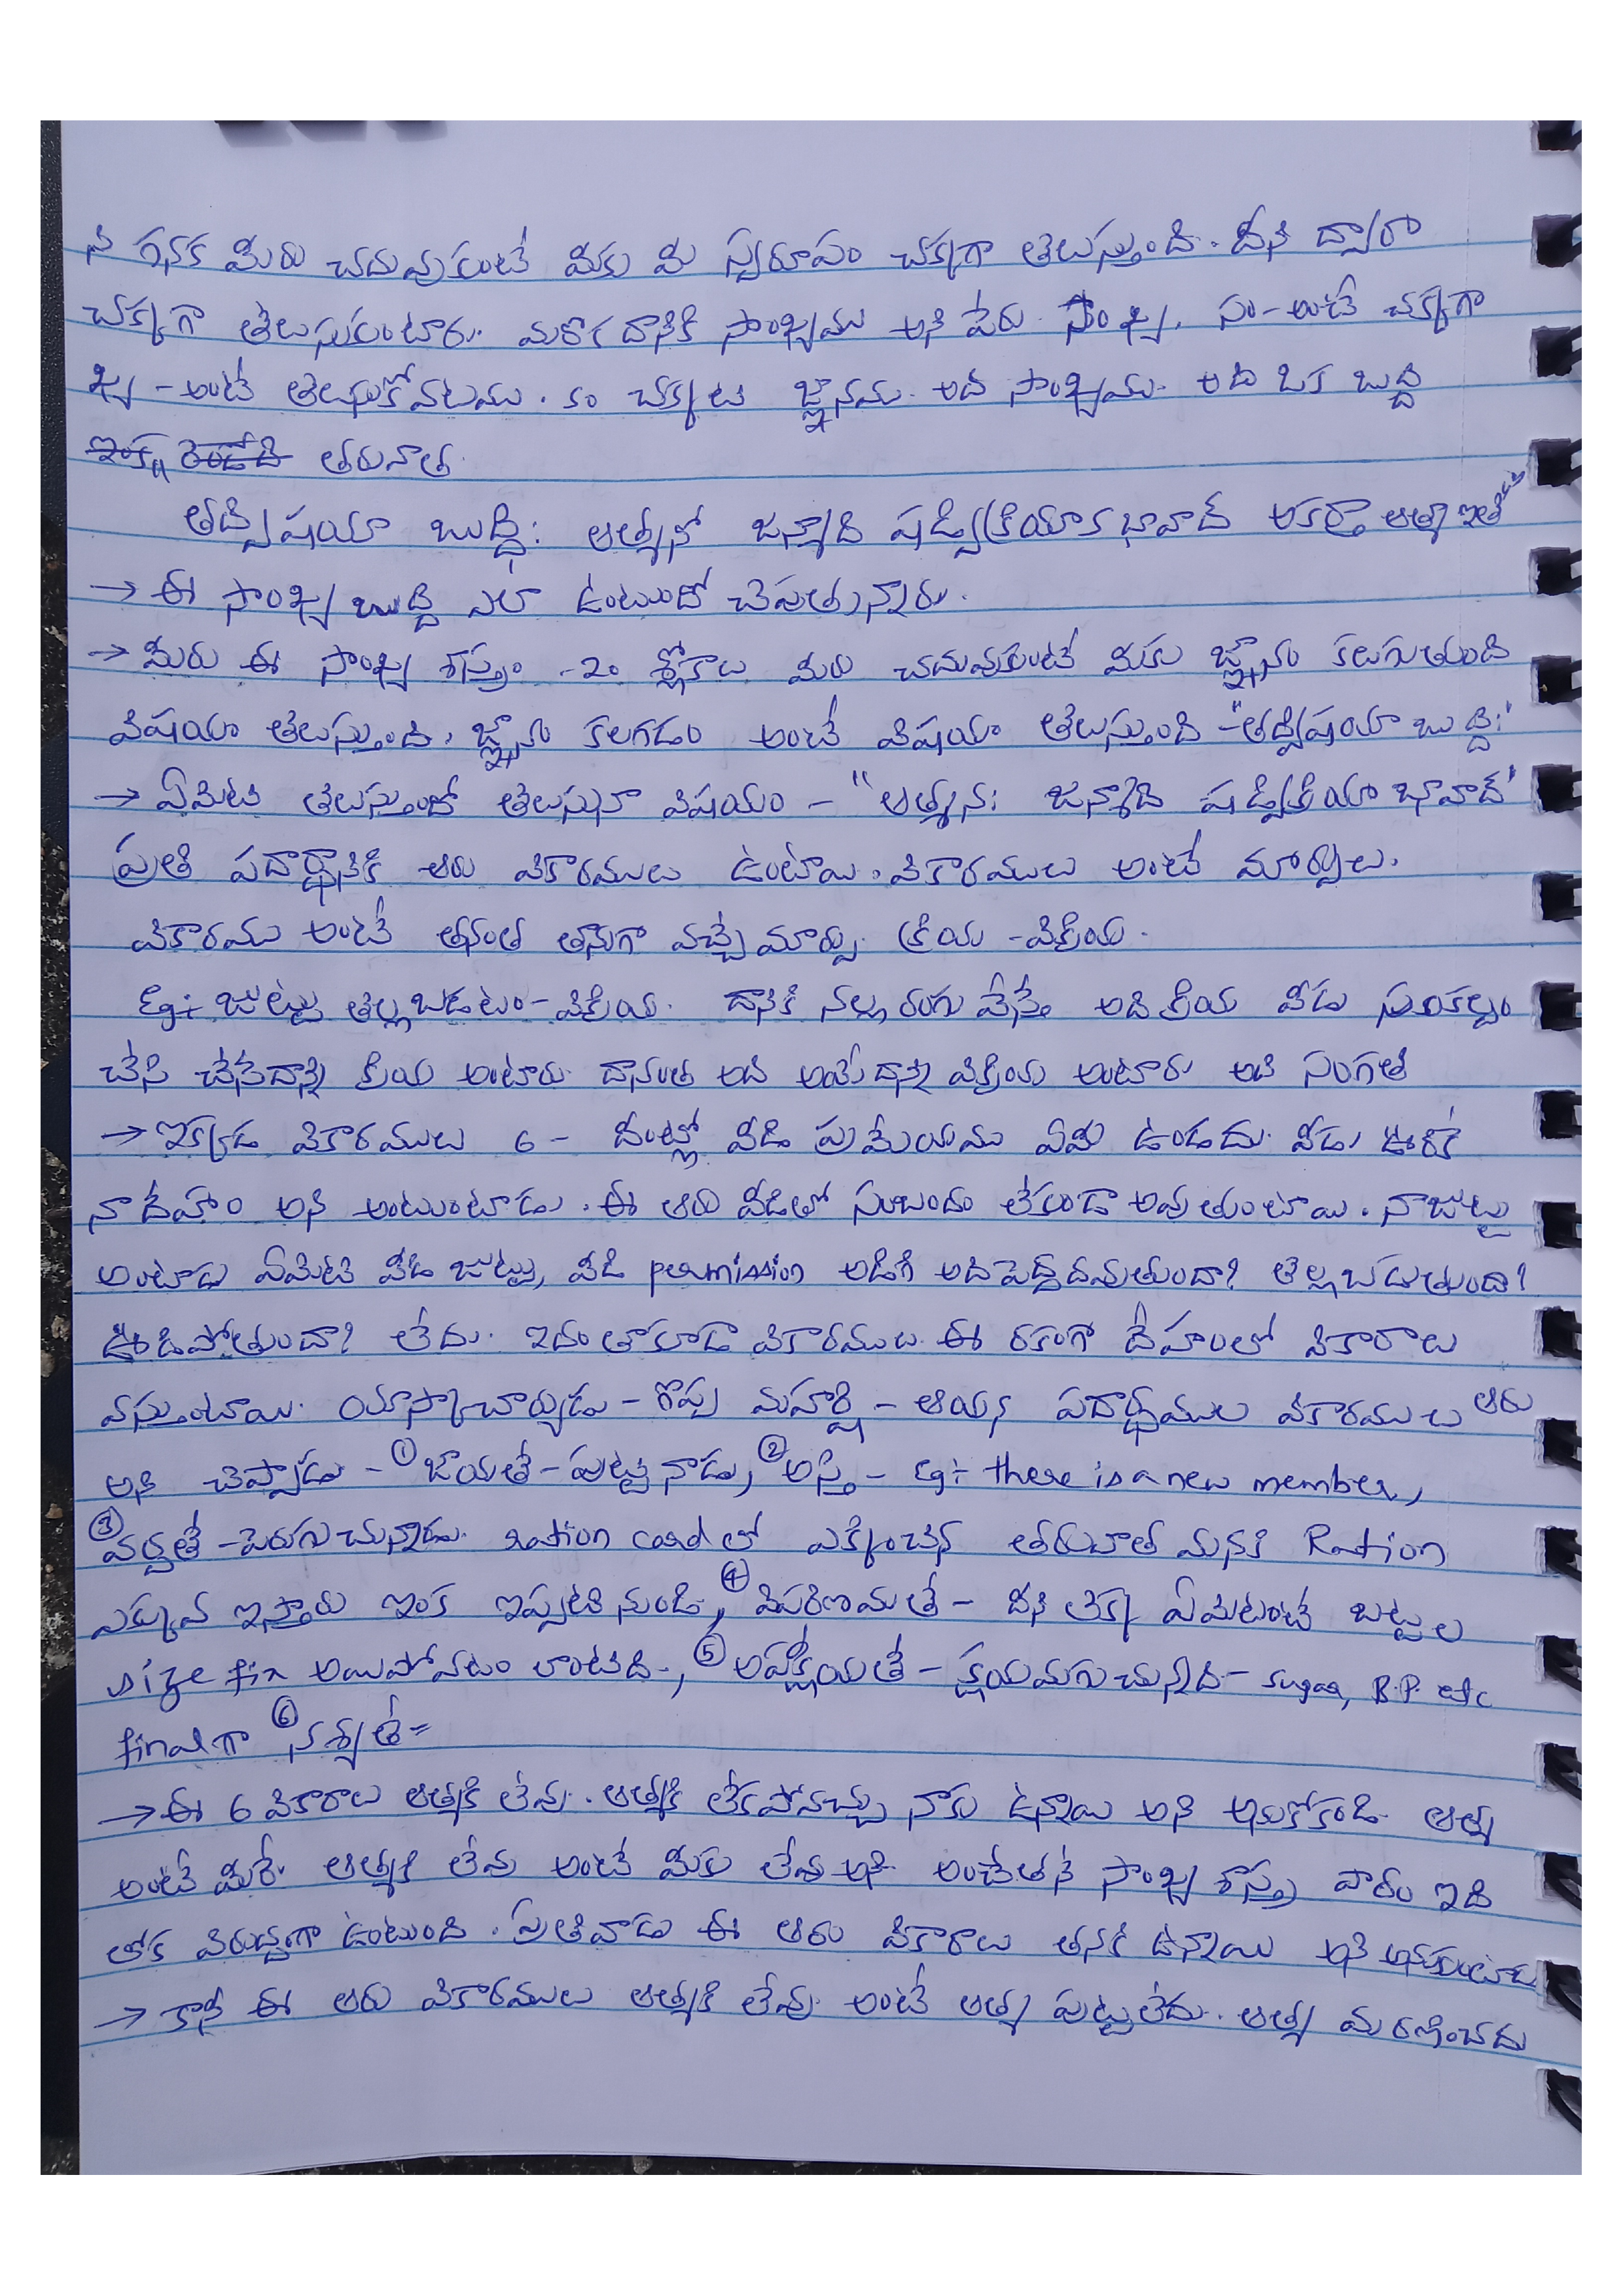 ని గనక మీరు చదువుకుంటే మీకు మీ స్వరూపం చక్కగా తెలుస్తుంది. దీని ద్వారా
చక్కగా తెలుసుకుంటారు. మరొక దానికి సాంఖ్యము అని పేరు సాంఖ్య. సం-అంటే చక్కగా
ఖ్య - అంటే తెలుసుకోవటము. కం చక్కటి జ్ఞానము. అది సాంఖ్యము. అది ఒక బుద్ధి
ఇంక రెండోది తరువాత
తద్విషయా బుద్ధి: ఆత్మనో జన్మాది షడ్విక్రియాక భావాద్ అకర్తా ఆత్మా ఇతి
→ ఈ సాంఖ్య బుద్ధి ఎలా ఉంటుందో చెపుతున్నారు.
→ మీరు ఈ సాంఖ్య శాస్త్రం - 20 శ్లోకాలు మీరు చదువుకుంటే మీకు జ్ఞానం కలుగుతుంది
విషయం తెలుస్తుంది. జ్ఞానం కలగడం అంటే విషయం తెలుస్తుంది - "తద్విషయా బుద్ధి:"
→ ఏమిటి తెలుస్తుందో తెలుసునా విషయం - "ఆత్మన: జన్మాది షడ్విక్రియా భావాద్"
ప్రతి పదార్థానికి ఆరు వికారములు ఉంటాయి. వికారములు అంటే మార్పులు.
వికారము అంటే తనంత తానుగా వచ్చే మార్పు. క్రియ - విక్రియ.
Eg:- జుట్టు తెల్లబడటం - విక్రియ. దానికి నల్ల రంగు వేస్తే అది క్రియ వీడు సంకల్పం
చేసి చేసేదాన్ని క్రియ అంటారు. దానంత అది అయ్యేదాన్ని విక్రియ అంటారు అది సంగతి
→ ఇక్కడ వికారములు 6 - దీంట్లో వీడి ప్రమేయము ఏమీ ఉండదు. వీడు ఊరికే
నా దేహం అని అంటుంటాడు. ఈ ఆరు వీడితో సంబంధం లేకుండా అవుతుంటాయి. నాజుట్టు
అంటాడు ఏమిటి వీడి జుట్టు, వీడి permission అడిగి అది పెద్దదవుతుందా? తెల్లబడుతుందా?
ఊడిపోతుందా? లేదు. ఇదంతాకూడా వికారములు. ఈ రకంగా దేహంలో వికారాలు
వస్తుంటాయి. యాస్కాచార్యుడు - గొప్ప మహర్షి - ఆయన పదార్థముల వికారములు ఆరు
అని చెప్పాడు - ① జాయతే - పుట్టినాడు, ② అస్తి - Eg:- there is a new member,
③ వర్ధతే - పెరుగుచున్నాడు. ration card లో ఎక్కించిన తరువాత మనకి Ration
ఎక్కువ ఇస్తారు ఇంక ఇప్పటి నుండి, ④ విపరిణమతే - దీని లెక్క ఏమిటంటే బట్టల
size fix అయిపోవటం లాంటిది., ⑤ అపక్షీయతే - క్షయమగుచున్నది - sugar, B.P. etc
finalగా ⑥ నశ్యతే =
→ ఈ 6 వికారాలు ఆత్మకి లేవు. ఆత్మకి లేకపోవచ్చు నాకు ఉన్నాయి అని అనుకోకండి. ఆత్మ
అంటే మీరే. ఆత్మకి లేవు అంటే మీకు లేవు అని. అంచేతనే సాంఖ్య శాస్త్ర పాఠం ఇది
లోక విరుద్ధంగా ఉంటుంది. ప్రతివాడు ఈ ఆరు వికారాలు తనకి ఉన్నాయి అని అనుకుంటాడు
→ కానీ ఈ ఆరు వికారములు ఆత్మకి లేవు. అంటే ఆత్మ పుట్టలేదు. ఆత్మ మరణించదు